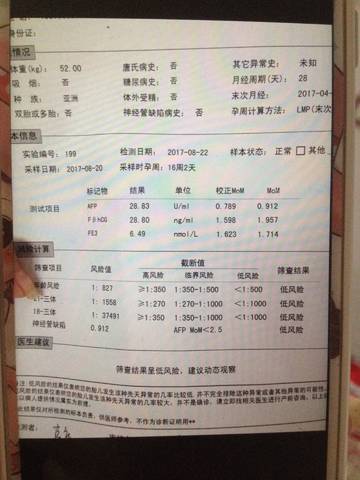 身份证：
情况
体重(kg)： 52.00 唐氏病史： 否 其它异常史： 未知
吸 烟： 否 糖尿病史： 否 月经周期(天)： 28
种 族： 亚洲 体外受精： 否 末次月经： 2017-04-
双胎或多胎： 否 神经管缺陷病史： 否 孕周计算方法： LMP(末次
本信息
实验编号： 199 检测日期： 2017-08-22 样本状态： 正常 □ 其他
采样日期： 2017-08-20 采样时孕周： 16周2天
标记物 结果 单位 校正MoM MoM
测试项目 AFP 28.83 U/ml 0.789 0.912
FβhCG 28.80 ng/ml 1.598 1.957
FE3 6.49 nmol/L 1.623 1.714
风险计算
截断值
筛查项目 风险值 高风险 临界风险 低风险 筛查结果
年龄风险 1: 827 ≥1:350 1:350-1:500 <1:500 低风险
21-三体 1: 1558 ≥1:270 1:270-1:1000 <1:1000 低风险
18-三体 1: 37491 ≥1:350 1:350-1:1000 <1:1000 低风险
神经管缺陷 0.912 AFP MoM<2.5 低风险
医生建议
筛查结果呈低风险，建议动态观察
注：低风险的结果仅表明您的胎儿发生这种先天异常的几率比较低，并不完全排除这种异常或者其他异常的可能性。
此结果仅对所检测的标本负责，供医师参考，不作为诊断证明用